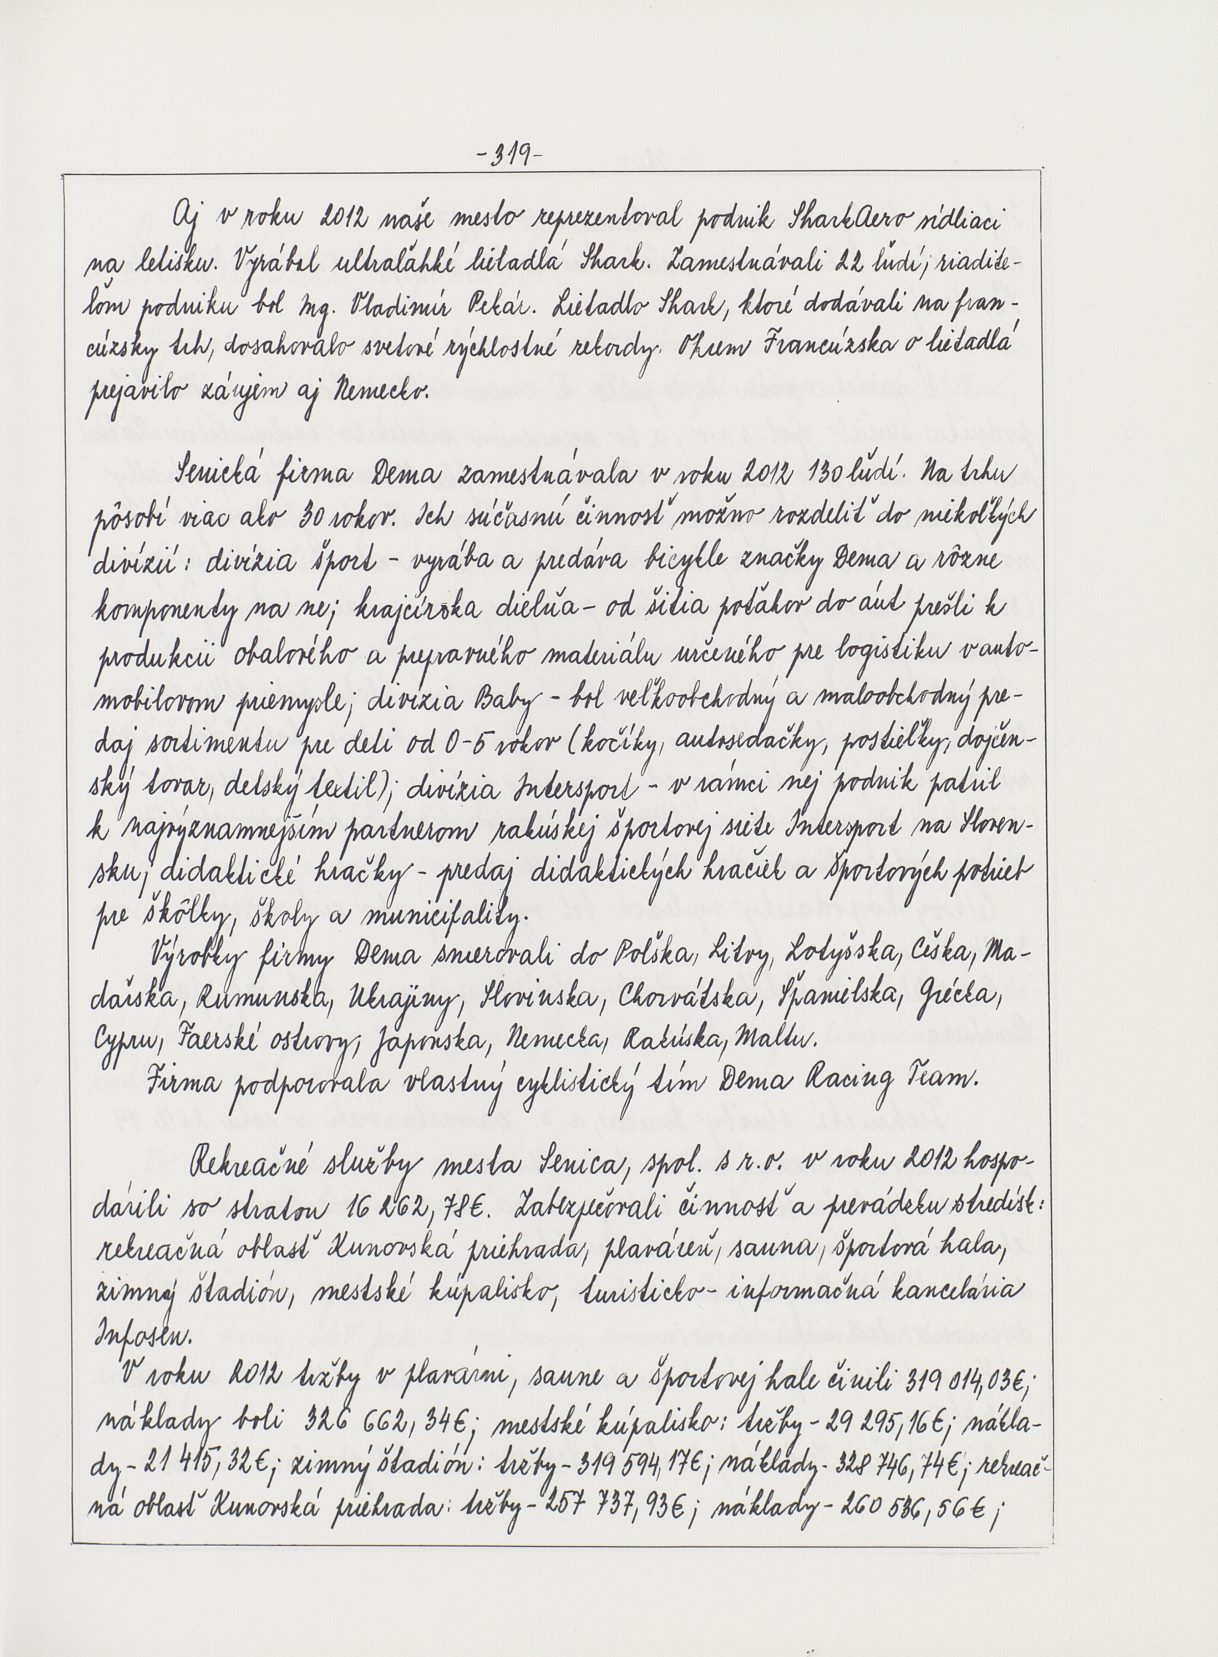 -319-
Aj v roku 2012 naše mesto reprezentoval podnik SharkAero sídliaci
na letisku. Vyrábal ultraľahké lietadlá Shark. Zamestnávali 22 ľudí; riadite-
ľom podniku bol Ing. Vladimír Pekár. Lietadlo Shark, ktoré dodávali na fran-
cúzsky trh, dosahovalo svetové rýchlostné rekordy. Okrem Francúzska o lietadlá
prejavilo záujem aj Nemecko.
Senická firma Dema zamestnávala v roku 2012 130 ľudí. Na trhu
pôsobí viac ako 30 rokov. Ich súčasnú činnosť možno rozdeliť do niekoľkých
divízií: divízia šport - vyrába a predáva bicykle značky Dema a rôzne
komponenty na ne; krajčírska dielňa - od šitia poťahov do áut prešli k
produkcii obalového a prepravného materiálu určeného pre logistiku v auto-
mobilovom priemysle; divízia Baby - bol veľkoobchodný a maloobchodný pre-
daj sortimentu pre deti od 0-5 rokov (kočíky, autosedačky, postieľky, dojčen-
ský tovar, detský textil); divízia Intersport - v rámci nej podnik patril
k najvýznamnejším partnerom rakúskej športovej siete Intersport na Sloven-
sku; didaktické hračky - predaj didaktických hračiek a športových potrieb
pre škôlky, školy a municipality.
Výrobky firmy Dema smerovali do Poľska, Litvy, Lotyšska, Česka, Ma-
ďarska, Rumunska, Ukrajiny, Slovinska, Chorvátska, Španielska, Grécka,
Cypru, Faerské ostrovy, Japonska, Nemecka, Rakúska, Maltu.
Firma podporovala vlastný cyklistický tím Dema Racing Team.
Rekreačné služby mesta Senica, spol. s r.o. v roku 2012 hospo-
dárili so stratou 16 262,78€. Zabezpečovali činnosť a prevádzku stredísk:
rekreačná oblasť Kunovská priehrada, plaváreň, sauna, športová hala,
zimný štadión, mestské kúpalisko, turisticko-informačná kancelária
Infosen.
V roku 2012 tržby v plavárni, saune a športovej hale činili 319 014,03€;
náklady boli 326 662,34€; mestské kúpalisko: tržby - 29 295,16€; nákla-
dy - 21 415,32€; zimný štadión: tržby - 319 594,17€; náklady - 328 746,74€; rekreač-
ná oblasť Kunovská priehrada: tržby - 257 737,93€; náklady - 260 586,56€;